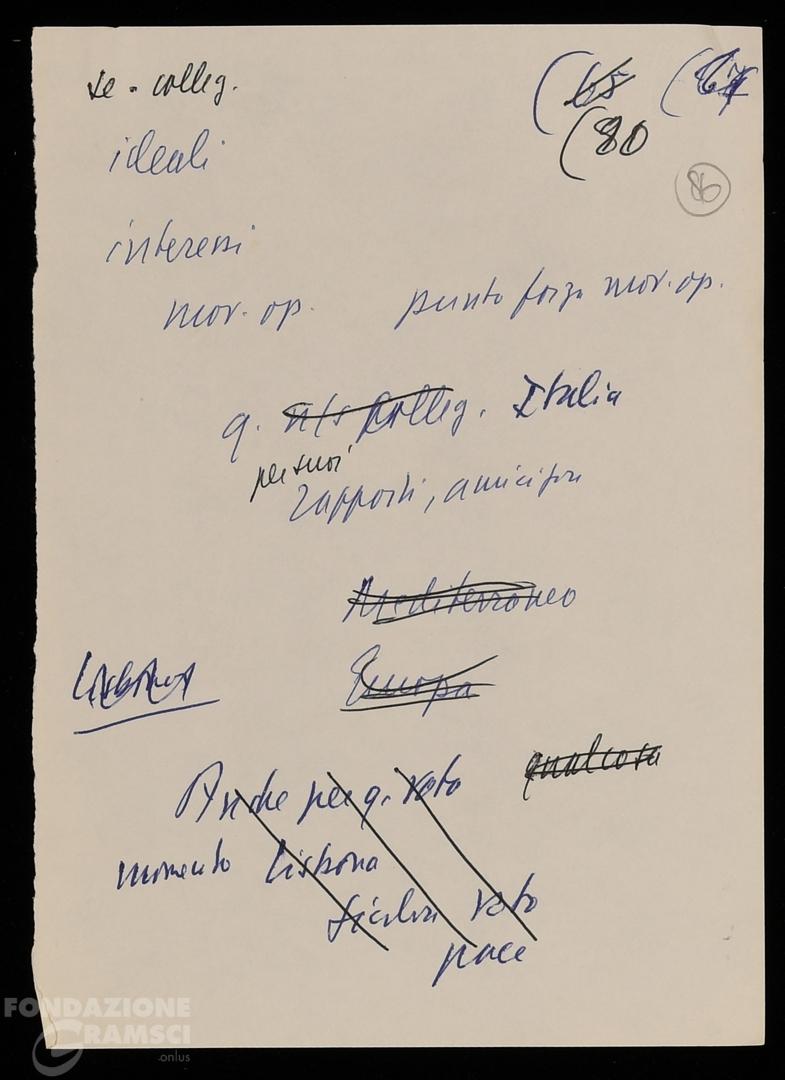 te - colleg. (65 (67
ideali (80
86
interessi
mov. op. punto forza mov. op.
q. n/s colleg. Italia
per suoi
rapporti, amicizia
Mediterraneo
Europa
Lisbona
qualcosa
Anche per q. voto
momento Lisbona
Sicilia voto
pace
FONDAZIONE
GRAMSCI
.onlus